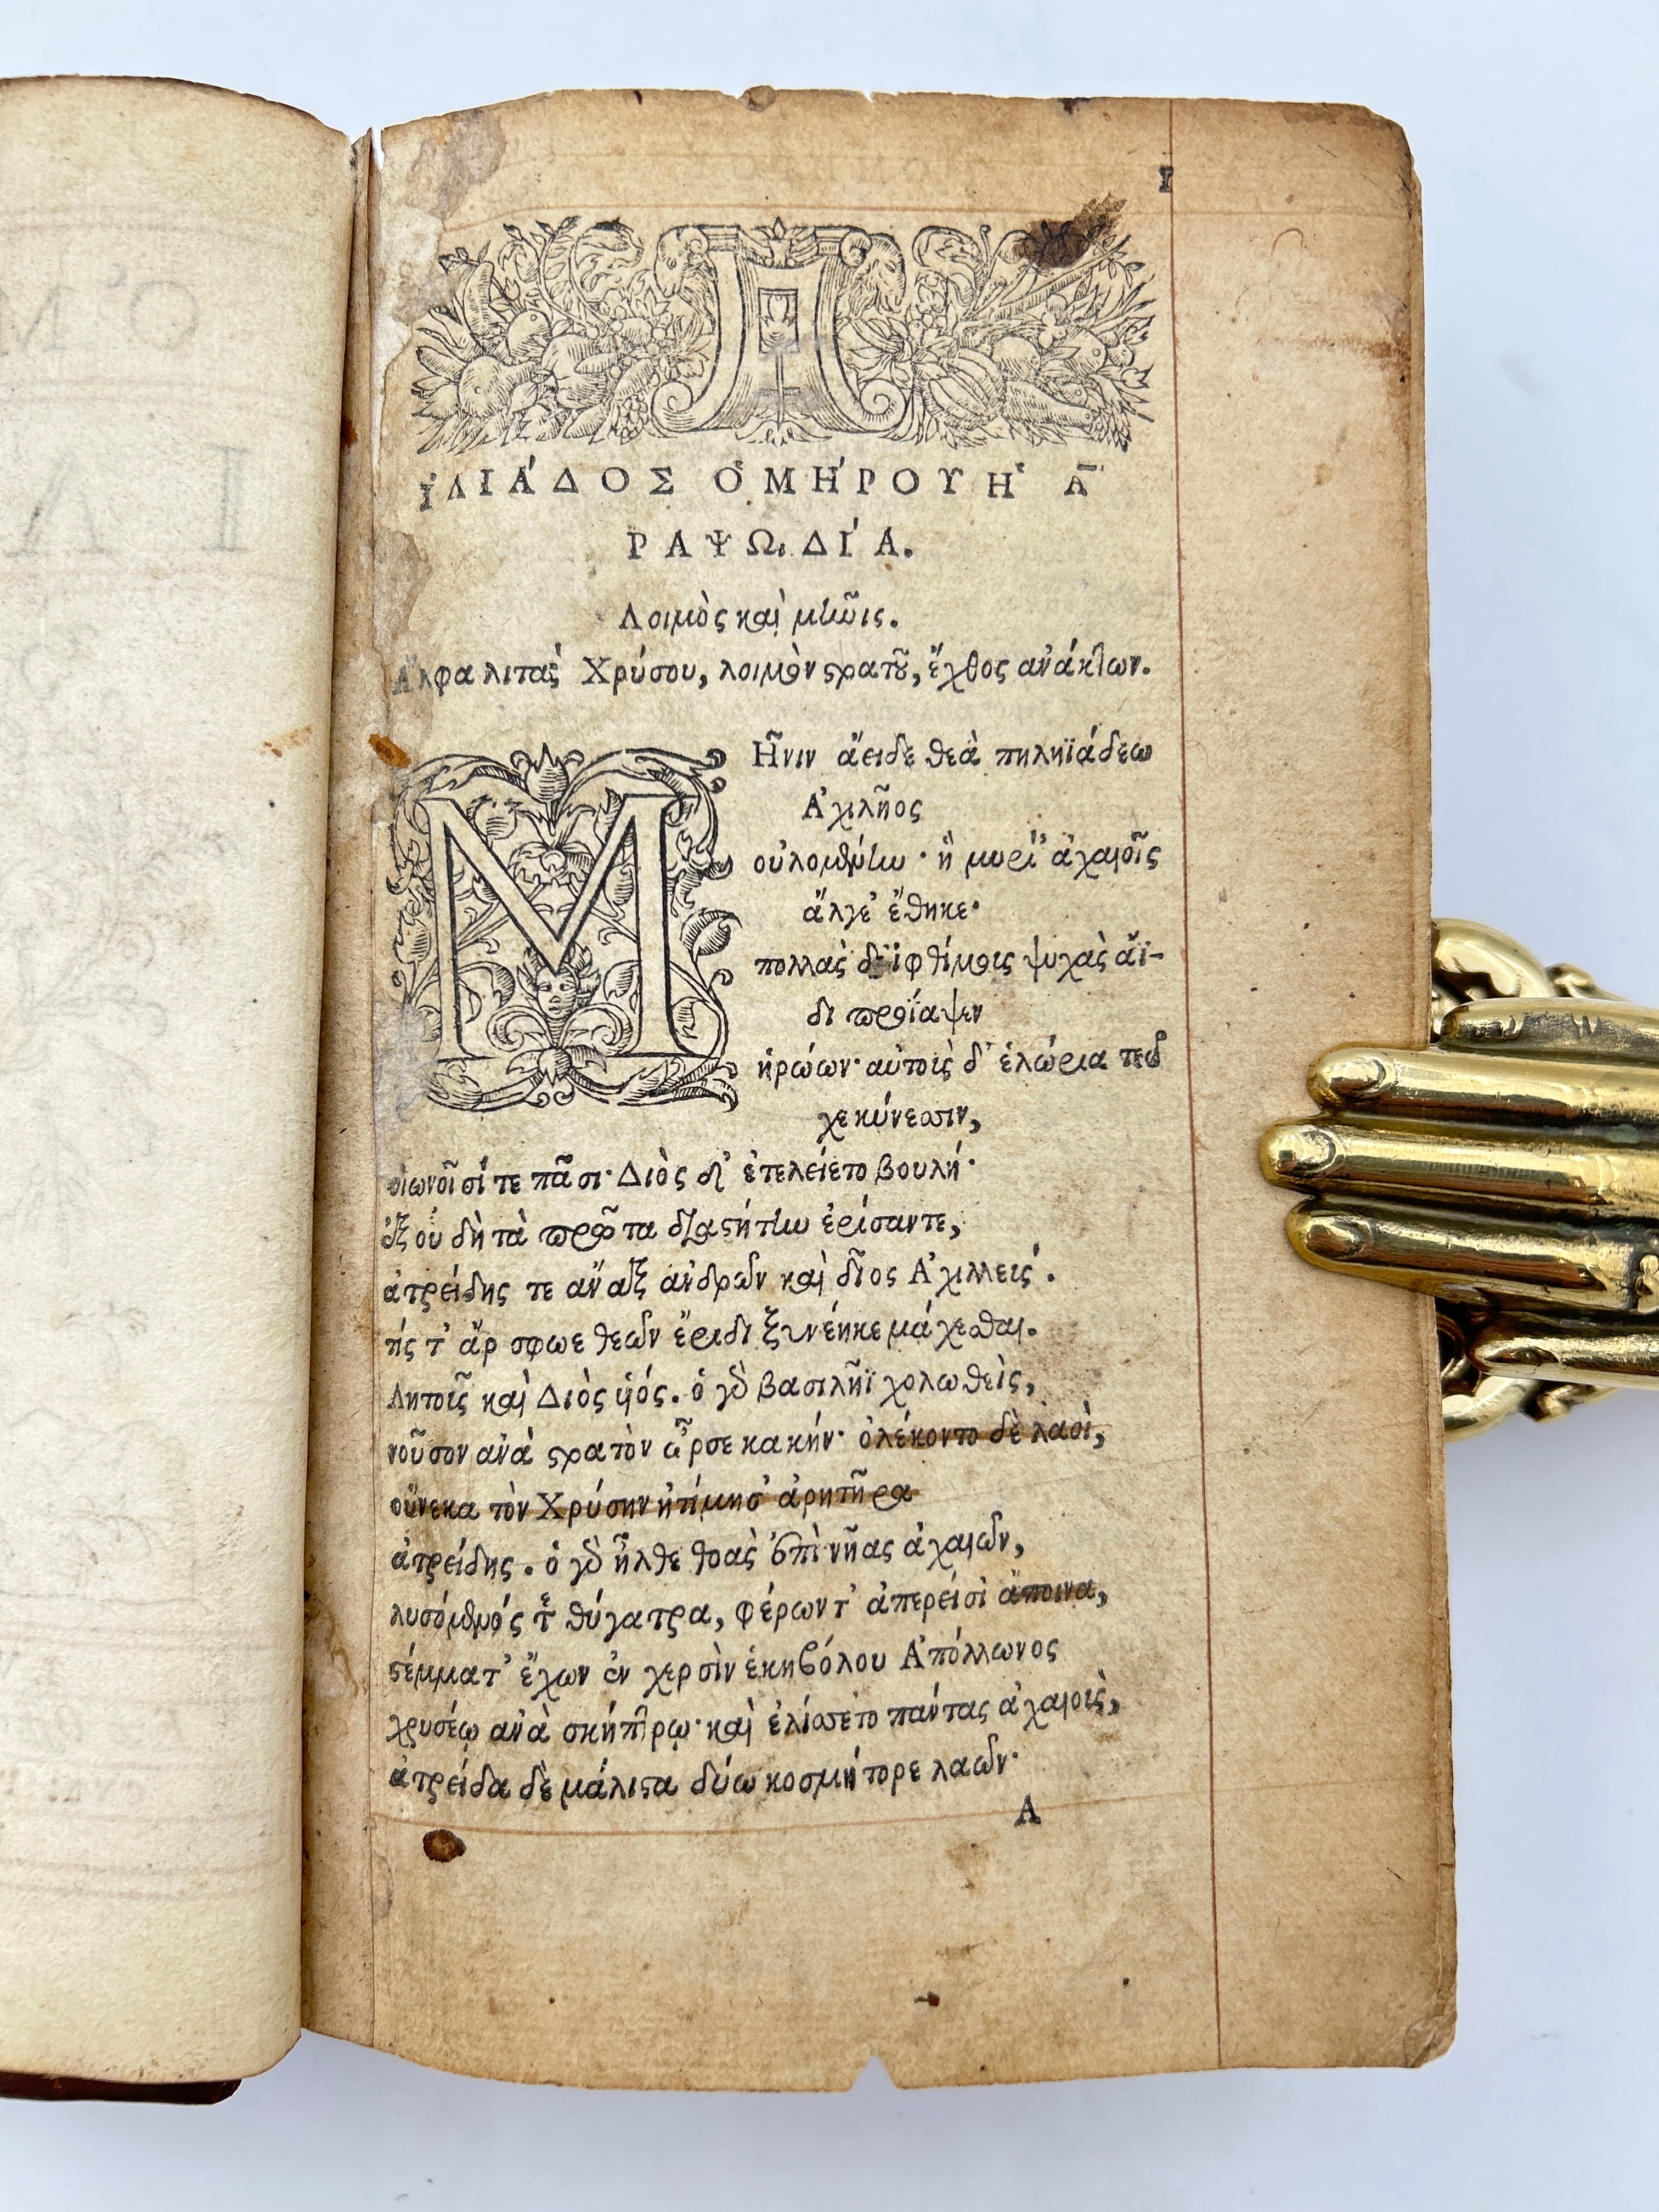 1
ἸΛΙΆΔΟΣ ὉΜΉΡΟΥ Ἡ Α
ῬΑΨΩΔΊΑ.
Λοιμὸς καὶ μῆνις.
Ἄλφα λιτὰς Χρύσου, λοιμὸν στρατοῦ, ἔχθος ἀνάκτων.
ΜΗ͂νιν ἄειδε θεὰ πηληϊάδεω
Ἀχιλῆος
οὐλομένην· ἣ μυρί' ἀχαιοῖς
ἄλγε' ἔθηκε·
πολλὰς δ' ἰφθίμοις ψυχὰς ἄϊ-
δι προΐαψεν
ἡρώων· αὐτοὺς δ' ἑλώρια τεῦ
χε κύνεσσιν,
οἰωνοῖσί τε πᾶσι· Διὸς δ' ἐτελείετο βουλή·
ἐξ οὗ δὴ τὰ πρῶτα διαστήτην ἐρίσαντε,
ἀτρείδης τε ἄναξ ἀνδρῶν καὶ δῖος Ἀχιλλεύς.
τίς τ' ἄρ σφωε θεῶν ἔριδι ξυνέηκε μάχεσθαι.
Λητοῦς καὶ Διὸς υἱός. ὁ γὰρ βασιλῆϊ χολωθεὶς,
νοῦσον ἀνὰ στρατὸν ὦρσε κακήν· ὀλέκοντο δὲ λαοὶ,
οὕνεκα τὸν Χρύσην ἠτίμησ' ἀρητῆρα
ἀτρείδης. ὁ γὰρ ἦλθε θοὰς ἐπὶ νῆας ἀχαιῶν,
λυσόμενός τε θύγατρα, φέρων τ' ἀπερείσι ἄποινα,
στέμματ' ἔχων ἐν χερσὶν ἑκηβόλου Ἀπόλλωνος
χρυσέῳ ἀνὰ σκήπτρῳ· καὶ ἐλίσσετο πάντας ἀχαιοὺς,
ἀτρείδα δὲ μάλιστα δύω κοσμήτορε λαῶν·
A